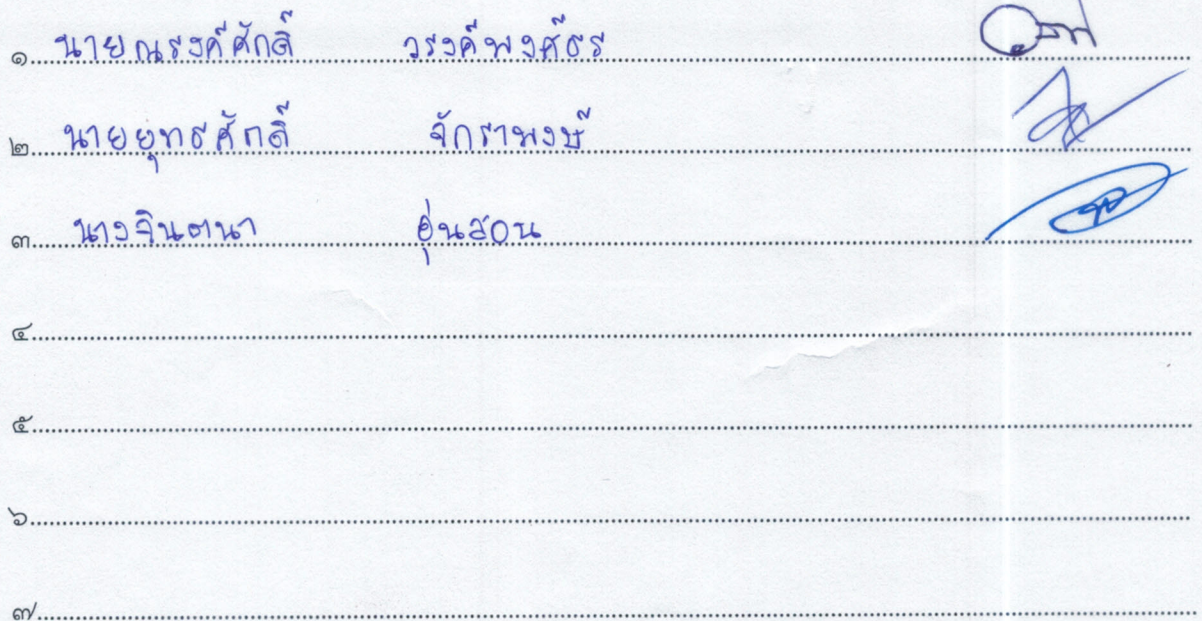 ๑. นายณรงค์ศักดิ์ วรงค์พงศ์ธร
๒. นายยุทธศักดิ์ จักราพงษ์
๓. นางจินตนา อุ่นสอน
๔.
๕.
๖.
๗.